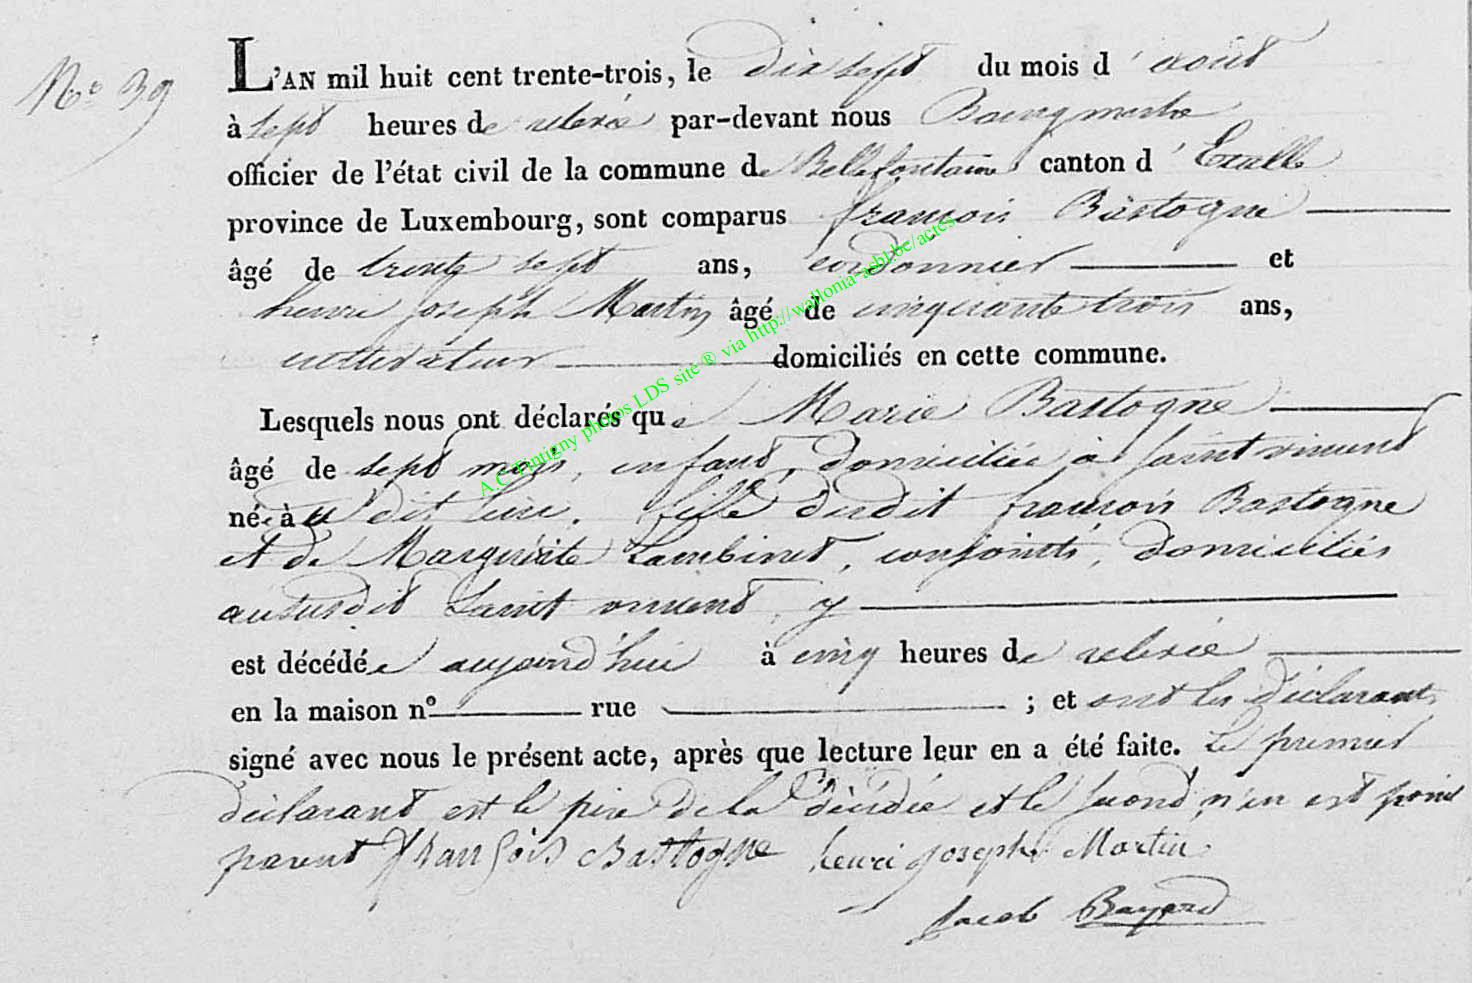 N° 39
L'AN mil huit cent trente-trois, le dix sept du mois d'août
à sept heures de relevée par-devant nous Bourgmestre
officier de l'état civil de la commune de Bellefontaine canton d'Etalle
province de Luxembourg, sont comparus françois Bastogne
âgé de trente sept ans, cordonnier et
henri joseph Martin âgé de cinquante trois ans,
cultivateur domiciliés en cette commune.
Lesquels nous ont déclarés que Marie Bastogne
âgé de sept mois, enfant, domiciliée à Saint vincent
née à u dit lieu. fille dudit françois Bastogne
et de Marguerite Lambinet, conjoints, domiciliés
au susdit Saint vincent, y
est décédée aujourd'hui à cinq heures de relevée
en la maison n° rue ; et ont les déclarants
signé avec nous le présent acte, après que lecture leur en a été faite. Le premier
déclarant est le père de la décédée et le second n'en est point
parent françois Bastogne henri joseph Martin
Jacob Bayard
A.C Tintigny photos LDS site ® via http://wallonia-asbl.be/actes